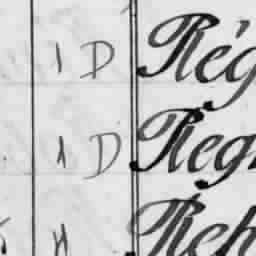 1 D Rég
1 D Reg
Reh